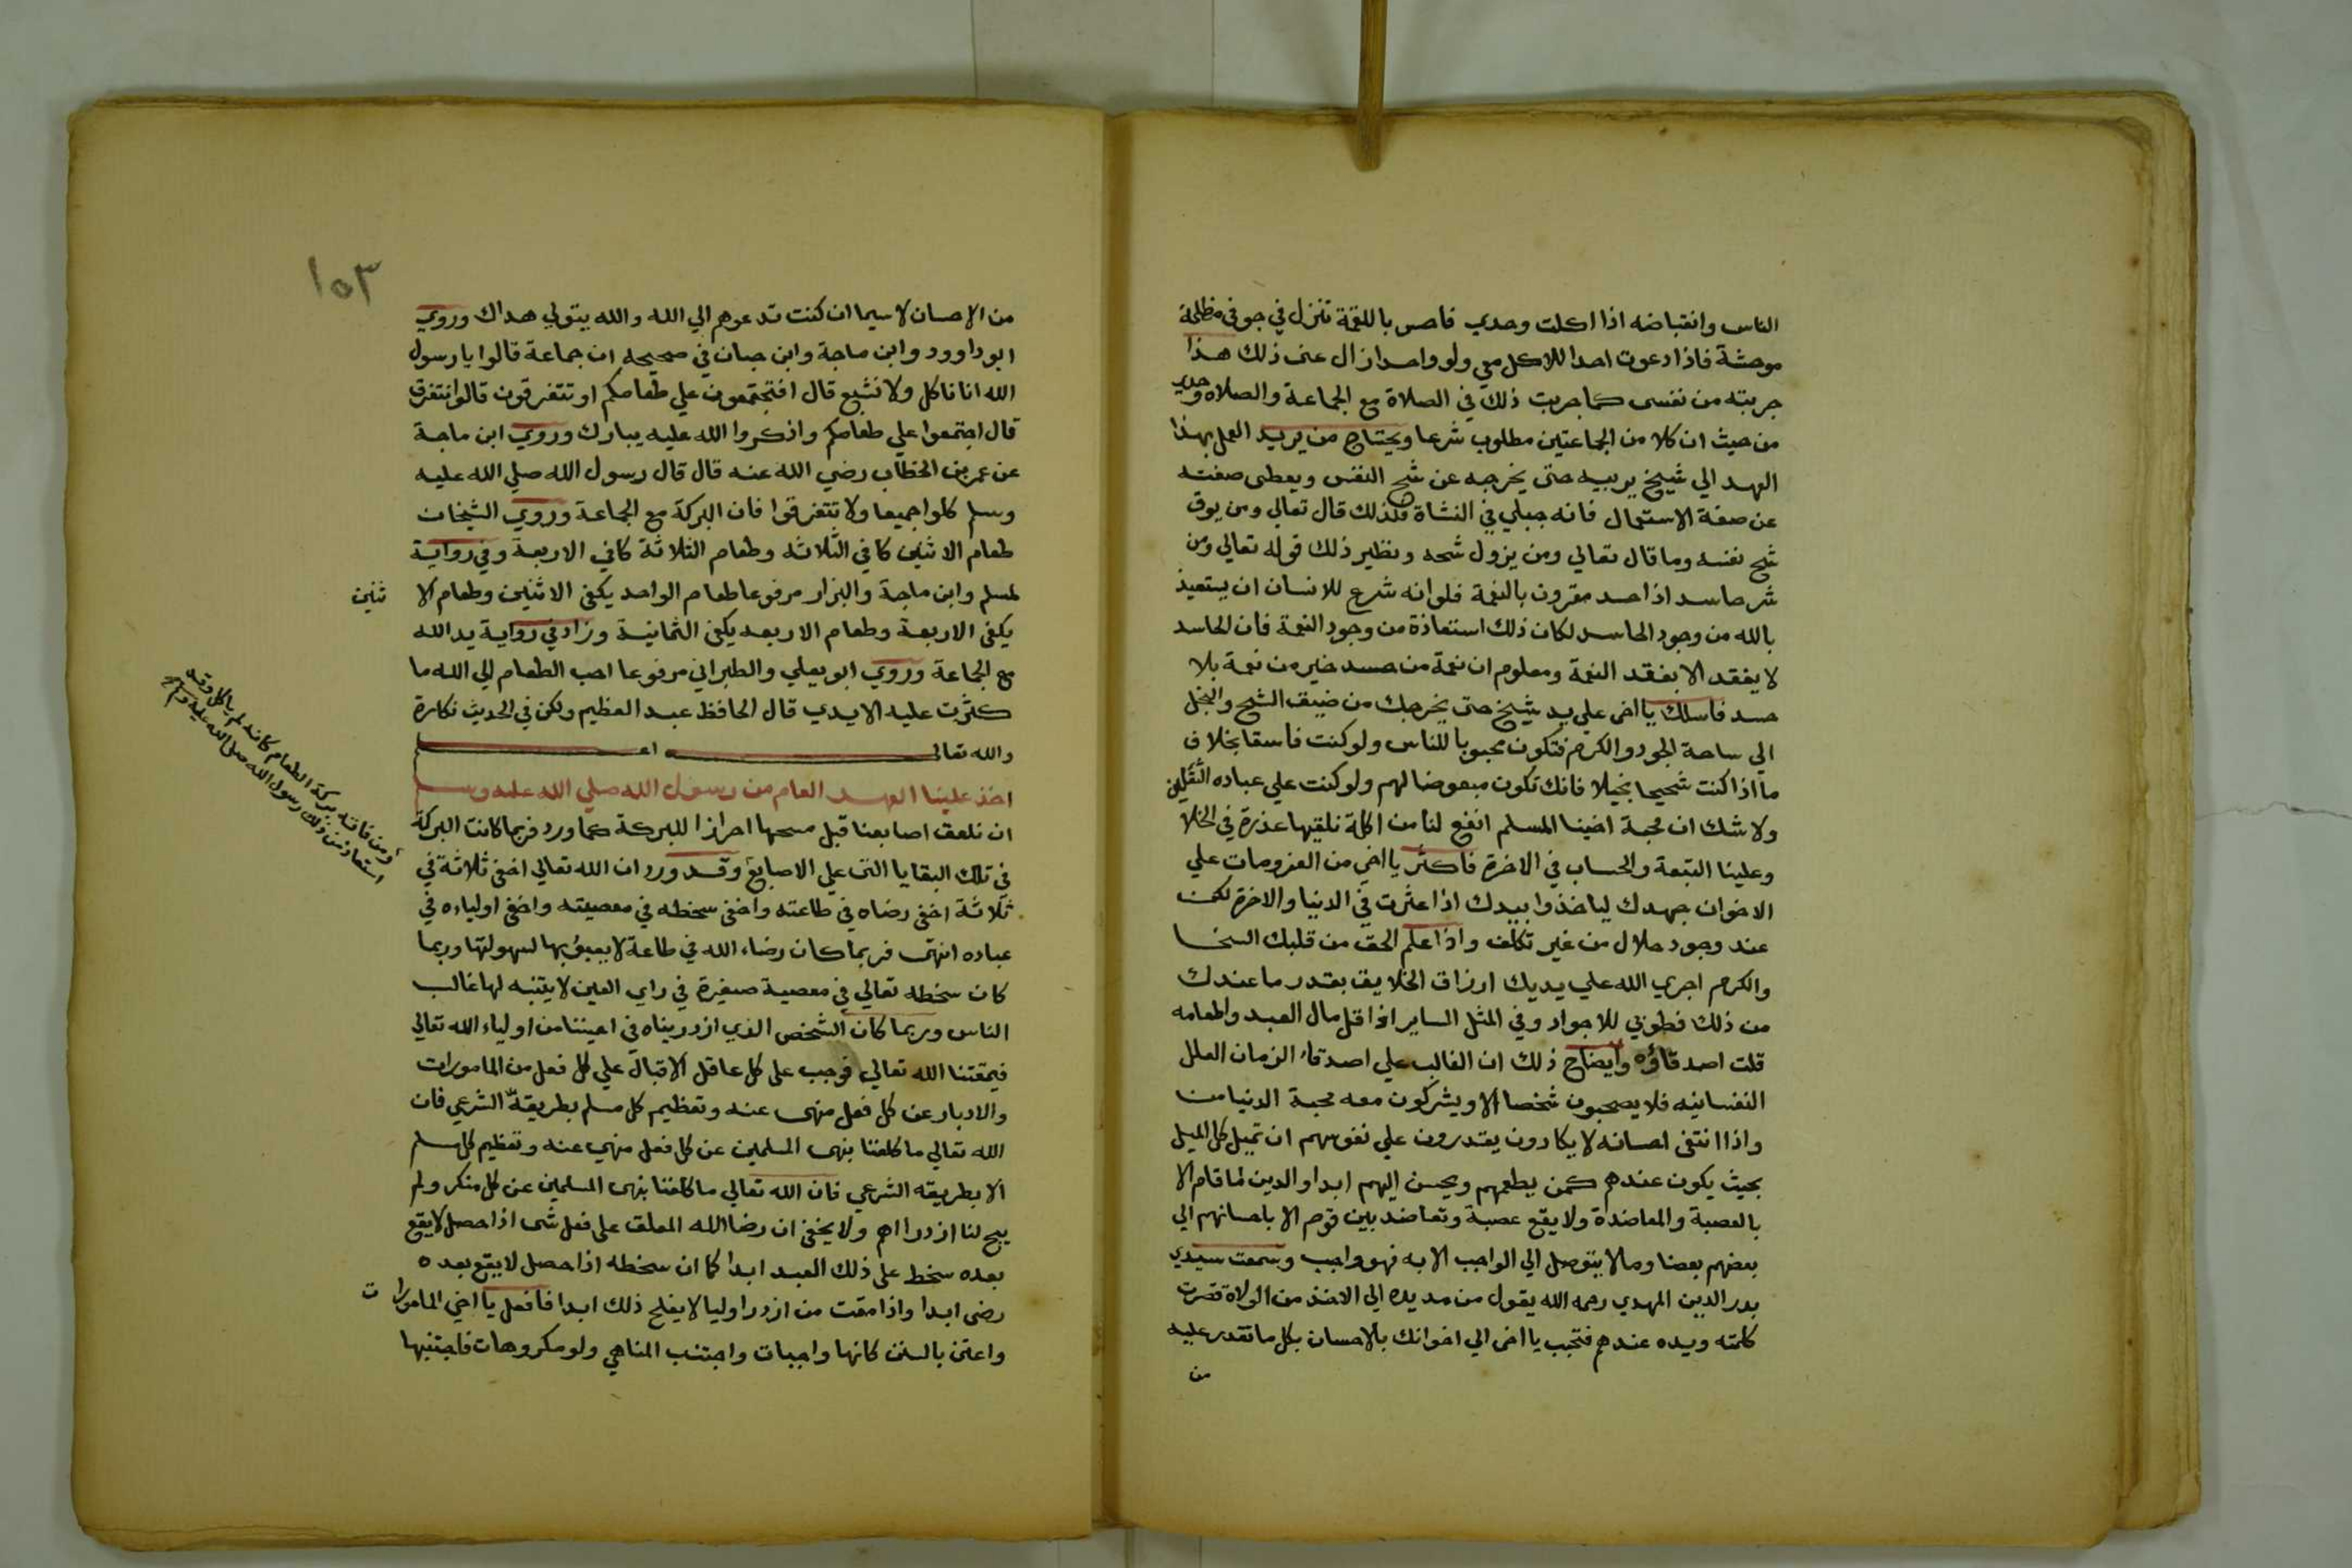 الناس وانقباضه اذا اكلت وحدي فاحس باللقمة تنزل في جوفي مظلمة
موحشة فاذا دعوت احدا للاكل معي ولو واحدا زال عني ذلك هذا
جربته من نفسى كما جربت ذلك في الصلاة مع الجماعة والصلاه وحدي
من حيث ان كلا من الجماعتين مطلوب شرعا ويحتاج من يريد العمل بهذا
العهد الي شيخ يربيه حتى يخرجه عن شح النفس ويعطى صفته
عن صفة الاستعمال فانه جبلي في النشاة فلذلك قال تعالي ومن يوق
شح نفسه وما قال تعالي ومن يزول شحه ونظير ذلك قوله تعالي ومن
شر حاسد اذا حسد مقرون بالنعمة فلو انه شرع للانسان ان يستعيذ
بالله من وجود الحاسد لكان ذلك استعاذة من وجود النعمة فان الحاسد
لا يفقد الا بفقد النعمة ومعلوم ان نعمة من حسد خير من نعمة بلا
حسد فاسلك يا اخى علي يد شيخ حتى يخرجك من ضيق الشح والبخل
الي ساحة الجود والكرم فتكون محبوبا للناس ولو كنت فاسقا بخلاف
ما اذا كنت شحيحا بخيلا فانك تكون مبعوضا لهم ولو كنت علي عباده الثقلين
ولا شك ان محبة اخينا المسلم انفع لنا من اكلة نلقيها عذرة في الخلا
وعلينا التبعة والحساب في الاخرة فاكثر يا اخي من العزومات علي
الاخوان جهدك لياخذوا بيدك اذا عثرت في الدنيا والاخرة لكن
عند وجود حلال من غير تكلف واذا علم الحق من قلبك السخا
والكرم اجري الله علي يديك ارزاق الخلايق بقدر ما عندك
من ذلك فطوبي للاجواد وفي المثل الساير اذا قل مال العبد واطعامه
قلت اصدقاؤه وايضاح ذلك ان الغالب علي اصدقاء الزمان العلل
النفسانيه فلا يصحبون شخصا الا ويشركون معه محبة الدنيا من
واذا انتفى احسانه لا يكادون يقدرون علي نفوسهم ان تميل كل الميل
بحيث يكون عندهم كمن يطعمهم ويحسن اليهم ابدا والدين لما قام الا
بالعصبة والمعاضدة ولا يقع عصبة وتعاضد بين قوم الا باحسانهم الي
بعضهم بعضا وما لا يتوصل الي الواجب الا به فهو واجب وسمعت سيدي
بدر الدين المهدي رحمه الله يقول من مد يده الي الاخذ من الولاة قصرت
كلمته ويده عندهم فتحبب يا اخى الي اخوانك بالاحسان بكل ما تقدر عليه
من
١٥٣
من الاحسان لا سيما ان كنت تدعوهم الي الله والله يتولي هداك وروي
ابو داوود وابن ماجة وابن حبان في صحيحه ان جماعة قالوا يا رسول
الله انا ناكل ولا نشبع قال افتجتمعون علي طعامكم او تتفرقون قالوا نتفرق
قال اجتمعوا علي طعامكم واذكروا الله عليه يبارك وروي ابن ماجة
عن عمر بن الخطاب رضي الله عنه قال قال رسول الله صلي الله عليه
وسلم كلوا جميعا ولا تتفرقوا فان البركة مع الجماعة وروي الشيخان
طعام الاثنين كافي الثلاثه وطعام الثلاثة كافي الاربعة وفي رواية
لمسلم وابن ماجة والبزار مرفوعا طعام الواحد يكفي الاثنين وطعام الا ثنين
يكفي الاربعة وطعام الاربعه يكفي الثمانية وزاد في رواية يد الله
مع الجماعة وروي ابو يعلي والطبراني مرفوعا احب الطعام الي الله ما
كثرت عليه الايدي قال الحافظ عبد العظيم ولكن في الحديث نكارة
والله تعالى اعلم
اخذ علينا العهد العام من رسول الله صلي الله عليه وسلم
ان نلعق اصابعنا قبل مسحها احرازا للبركة كما ورد فربما كانت البركة
في تلك البقايا التى علي الاصابع وقد ورد ان الله تعالي اخفى ثلاثة في
ثلاثة اخفى رضاه في طاعته واخفى سخطه في معصيته واخفى اولياءه في
عباده انتهى فربما كان رضاء الله في طاعة لا يعبؤ بها لسهولتها وربما
كان سخطه تعالي في معصية صغيرة في راي العين لا يتنبه لها غالب
الناس وربما كان الشخص الذي ازدريناه في اعيننا من اولياء الله تعالي
فيمقتنا الله تعالي فوجب على كل عاقل الاقبال علي كل فعل من المامورات
والادبار عن كل فعل منهى عنه وتعظيم كل مسلم بطريقه الشرعي فان
الله تعالي ما كلفنا بنهى المسلمين عن كل فعل منهي عنه وتعظيم كل مسلم
الا بطريقه الشرعي فان الله تعالي ما كلفنا بنهى المسلمين عن كل منكر ولم
يبح لنا ازدرااهم ولا يخفي ان رضا الله المعلق على فعل شى اذا حصل لا يقع
بعده سخط على ذلك العبد ابدا كما ان سخطه اذا حصل لا يقع بعده
رضى ابدا واذا مقت من ازدرا وليا لا يفلح ذلك ابدا فافعل يا اخي المامورات
واعتن بالسنن كانها واجبات واجتنب المناهي ولو مكروهات فاجتنبها
ومن فاتته بركة الطعام كانه لم ياكل وقد
استعاذ من ذلك رسول الله صلى الله عليه وسلم